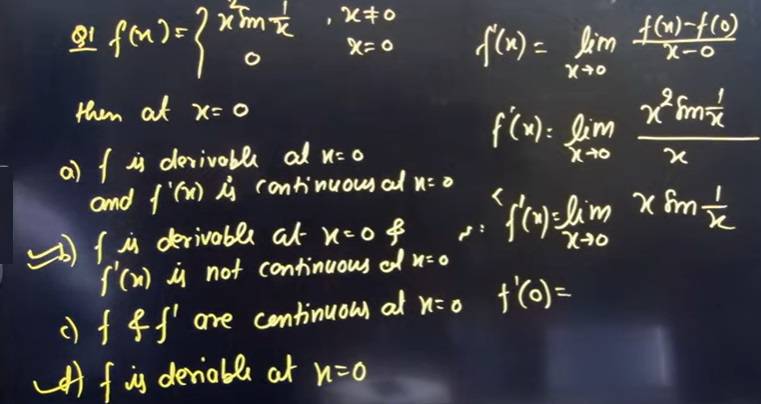 Q1 f(x) = { x² sin 1/x , x ≠ 0
0 x = 0
then at x = 0
a) f is derivable at x = 0
and f'(x) is continuous at x = 0
b) f is derivable at x = 0 &
f'(x) is not continuous at x = 0
c) f & f' are continuous at x = 0
d) f is deriable at x = 0
f'(x) = lim x→0 f(x) - f(0) / x - 0
f'(x) = lim x→0 x² sin 1/x / x
f'(x) = lim x→0 x sin 1/x
f'(0) =